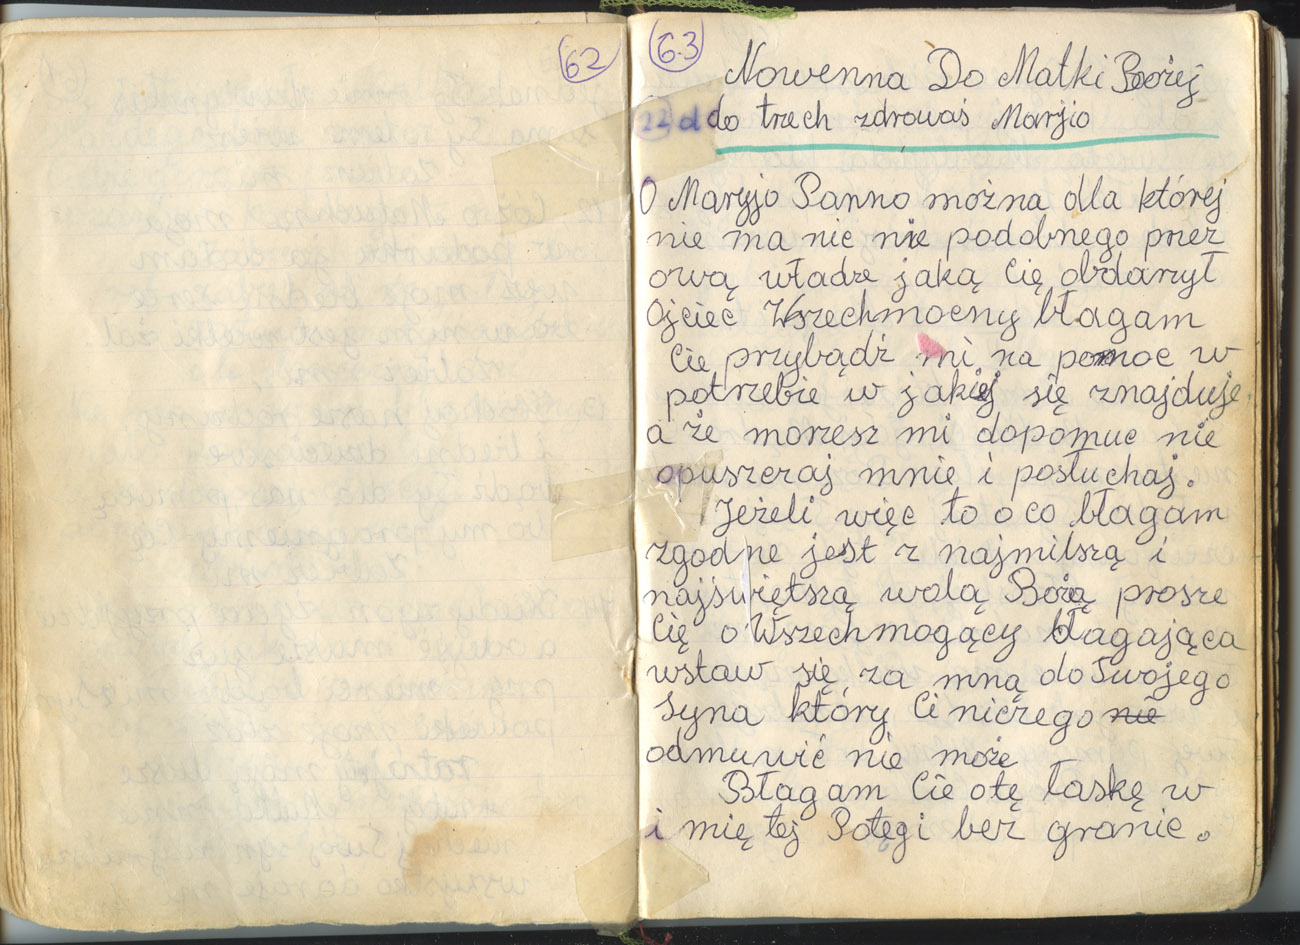 62
63
Nowenna Do Matki Bożej
22 d do trzech zdrowaś Maryjo
O Maryjo Panno można dla której
nie ma nic nie podobnego przez
ową władze jaką Cię obdarzył
Ojciec Wszechmocny błagam
Cie przybądź mi na pomoc w
potrzebie w jakiej się znajduje,
a że morzesz mi dopomuc nie
opuszczaj mnie i posłuchaj.
Jeżeli więc to o co błagam
zgodne jest z najmilszą i
najświętszą wolą Bożą prosze
Cię o Wszechmogący błagająca
wstaw się za mną do Swojego
Syna który Ci niczego nie
odmuwić nie może
Błagam Cie otę łaskę w
i mię tej Potęgi bez granic.